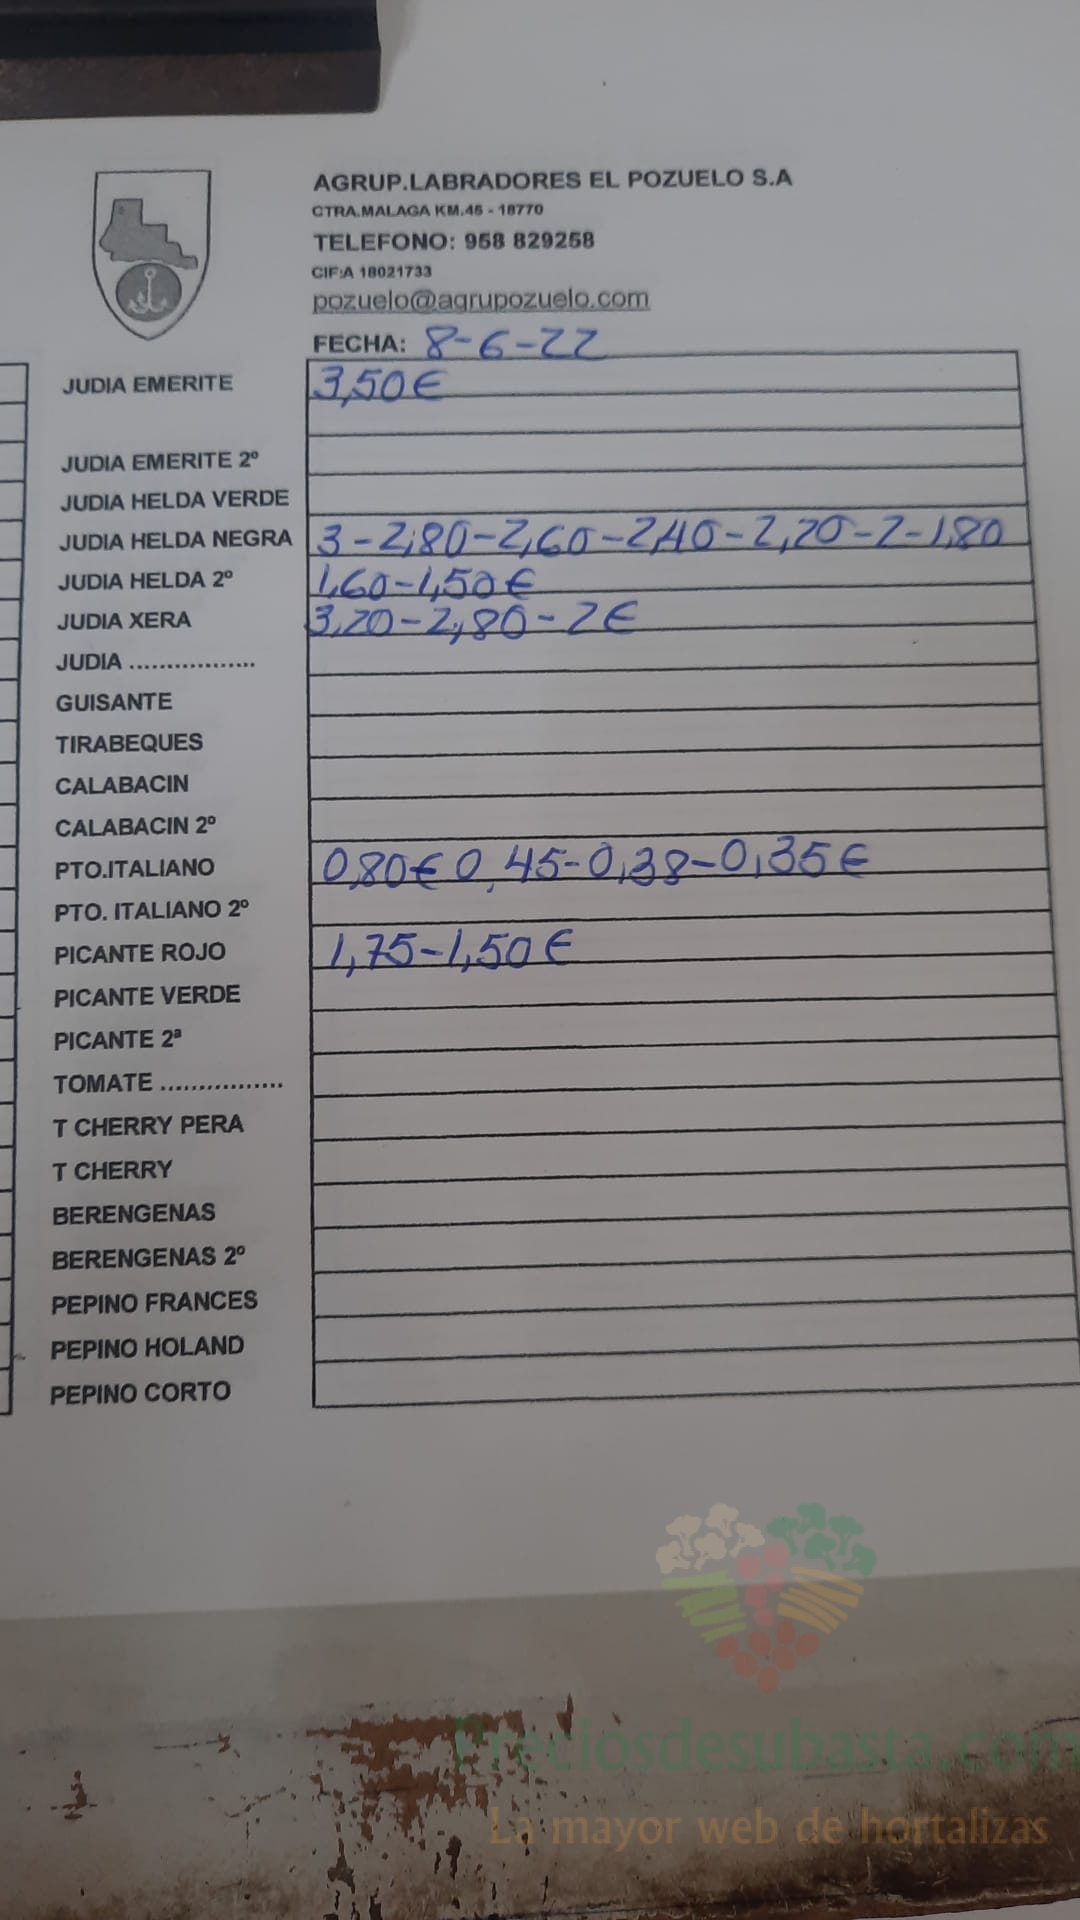 AGRUP.LABRADORES EL POZUELO S.A
CTRA.MALAGA KM.45 - 18770
TELEFONO: 958 829258
CIF:A 18021733
pozuelo@agrupozuelo.com
FECHA: 8-6-22
JUDIA EMERITE 3,50€
JUDIA EMERITE 2º
JUDIA HELDA VERDE
JUDIA HELDA NEGRA 3-2,80-2,60-2,40-2,20-2-1,80
JUDIA HELDA 2º 1,60-1,50€
JUDIA XERA 3,20-2,80-2€
JUDIA .................
GUISANTE
TIRABEQUES
CALABACIN
CALABACIN 2º
PTO.ITALIANO 0,80€ 0,45-0,38-0,35€
PTO. ITALIANO 2º
PICANTE ROJO 1,75-1,50€
PICANTE VERDE
PICANTE 2ª
TOMATE ................
T CHERRY PERA
T CHERRY
BERENGENAS
BERENGENAS 2º
PEPINO FRANCES
PEPINO HOLAND
PEPINO CORTO
Preciosdesubasta.com
La mayor web de hortalizas